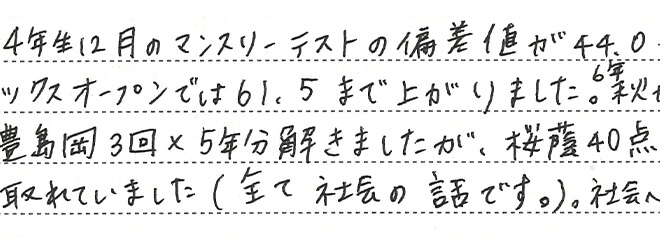 4年生12月のマンスリーテストの偏差値が44.0
ックスオープンでは61.5まで上がりました。6年秋
豊島岡3回×5年分解きましたが、桜蔭40点
取れていました(全て社会の話です。)。社会へ